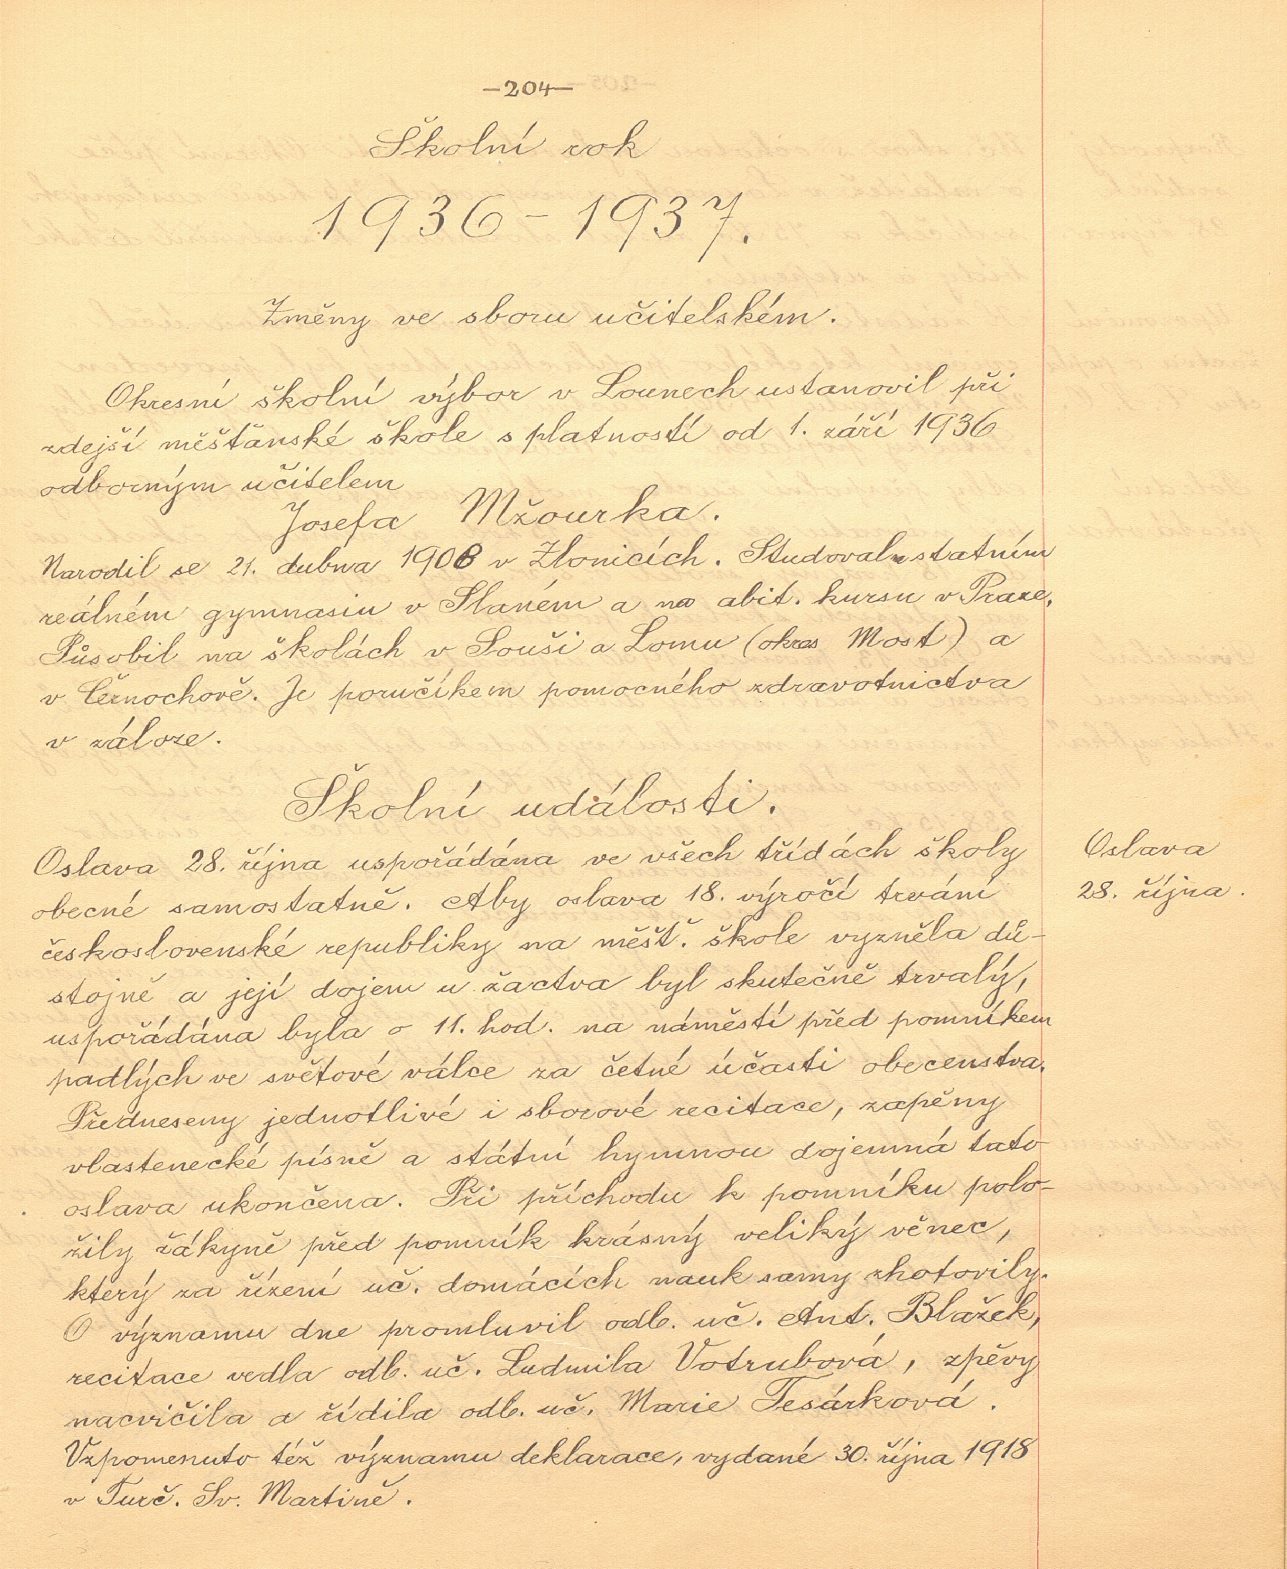 —204—
Školní rok
1936 – 1937.
Změny ve sboru učitelském.
Okresní školní výbor v Lounech ustanovil při
zdejší měšťanské škole s platností od 1. září 1936
odborným učitelem
Josefa Mžourka.
Narodil se 21. dubna 1908 v Zlonicích. Studoval statním
reálném gymnasiu v Slaném a na abit. kursu v Praze.
Působil na školách v Souši a Lomu (okres Most) a
v Černochově. Je poručíkem pomocného zdravotnictva
v záloze.
Školní události.
Oslava 28. října uspořádána ve všech třídách školy
obecné samostatně. Aby oslava 18. výročí trvání
československé republiky na měšť. škole vyzněla dů-
stojně a její dojem u žactva byl skutečně trvalý,
uspořádána byla o 11. hod. na náměstí před pomníkem
padlých ve světové válce za četné účasti obecenstva.
Předneseny jednotlivé i sborové recitace, zapěny
vlastenecké písně a státní hymnou dojemná tato
oslava ukončena. Při příchodu k pomníku polo-
žily žákyně před pomník krásný veliký věnec,
který za řízení uč. domácích nauk samy zhotovily.
O významu dne promluvil odb. uč. Ant. Blažek,
recitace vedla odb. uč. Ludmila Votrubová, zpěvy
nacvičila a řídila odb. uč. Marie Tesárková.
Vzpomenuto též významu deklarace, vydané 30. října 1918
v Turč. Sv. Martině.
Oslava
28. října.